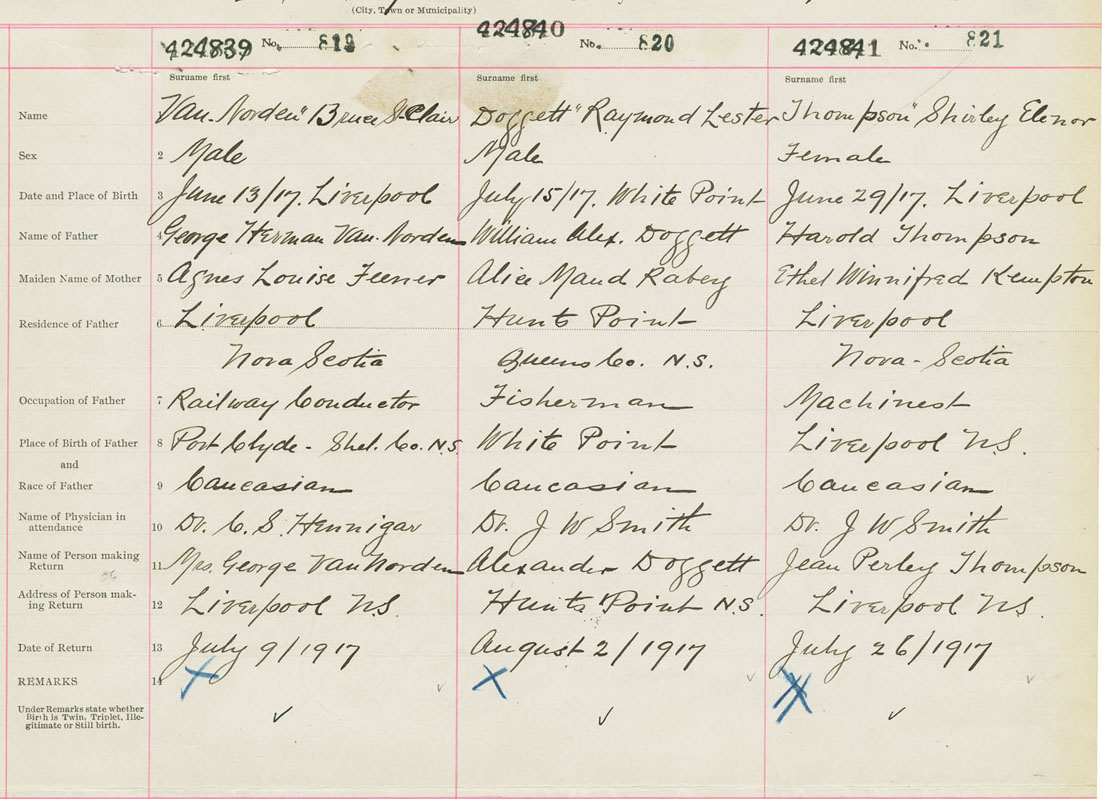 (City, Town or Municipality)
424839 No. 819 424840 No. 820 424841 No. 821
Surname first Surname first Surname first
Name Van. Norden" Bruce St Clair Doggett" Raymond Lester Thompson" Shirley Elenor
Sex 2 Male Male Female
Date and Place of Birth 3 June 13/17. Liverpool July 15/17. White Point June 29/17. Liverpool
Name of Father 4 George Herman Van. Norden William Alex. Doggett Harold Thompson
Maiden Name of Mother 5 Agnes Louise Feener Alice Maud Raberg Ethel Winnifred Kempton
Residence of Father 6 Liverpool Hunts Point Liverpool
Nova Scotia Queens Co. N.S. Nova-Scotia
Occupation of Father 7 Railway Conductor Fisherman Machinest
Place of Birth of Father 8 Port Clyde - Shel. Co. N.S. White Point Liverpool N.S.
and
Race of Father 9 Caucasian Caucasian Caucasian
Name of Physician in
attendance 10 Dr. C. S. Hennigar Dr. J W Smith Dr. J W Smith
Name of Person making
Return 11 Mrs. George Van Norden Alexander Doggett Jean Perley Thompson
Address of Person mak-
ing Return 12 Liverpool N.S. Hunts Point N.S. Liverpool N.S.
Date of Return 13 July 9/1917 August 2/1917 July 26/1917
REMARKS 14
Under Remarks state whether
Birth is Twin, Triplet, Ille-
gitimate or Still birth.